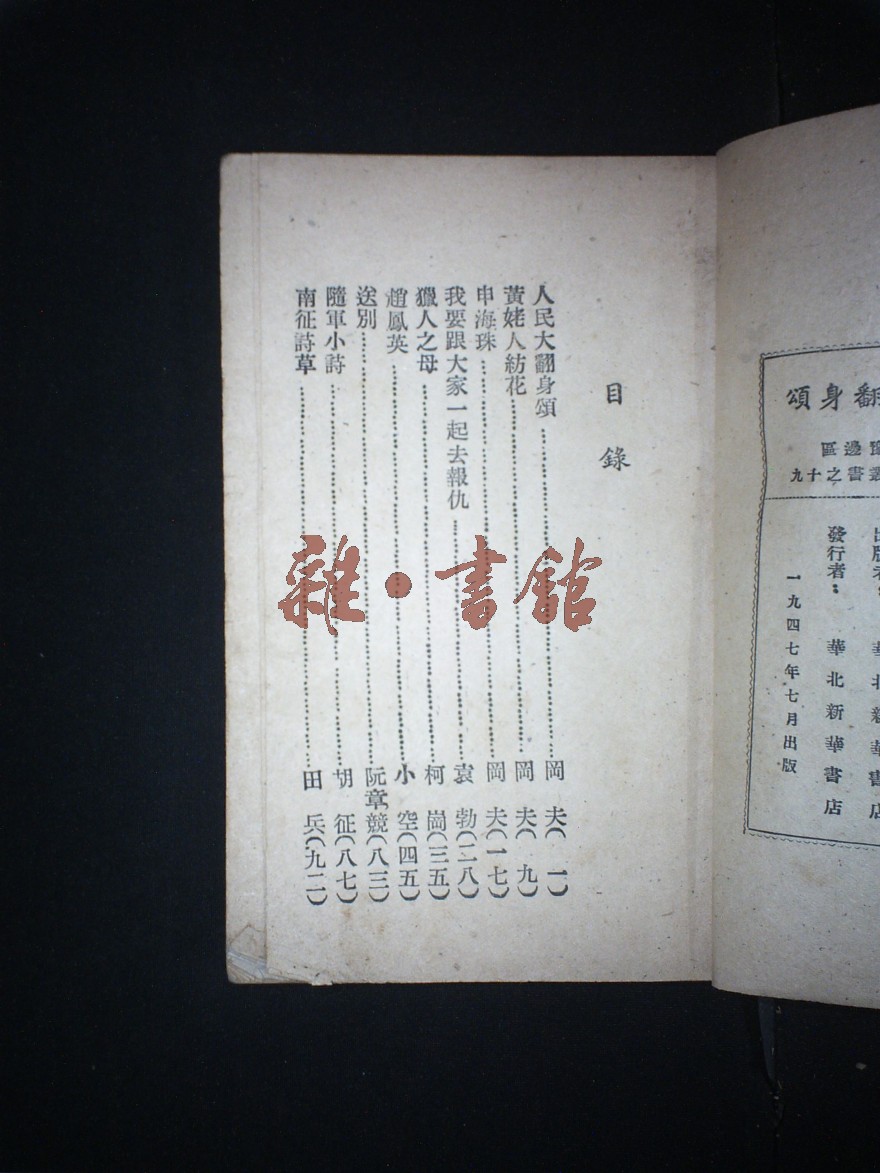 翻身頌
邊區
叢書之十九
出版者：華北新華書店
發行者：華北新華書店
一九四七年七月出版
目錄
人民大翻身頌……岡夫(一)
黃姥人紡花……岡夫(九)
申海珠……岡夫(一七)
我要跟大家一起去報仇……袁勃(二八)
獵人之母……柯崗(三五)
趙鳳英……小空(四五)
送別……阮章競(八三)
隨軍小詩……胡征(八七)
南征詩草……田兵(九二)
雜·書館